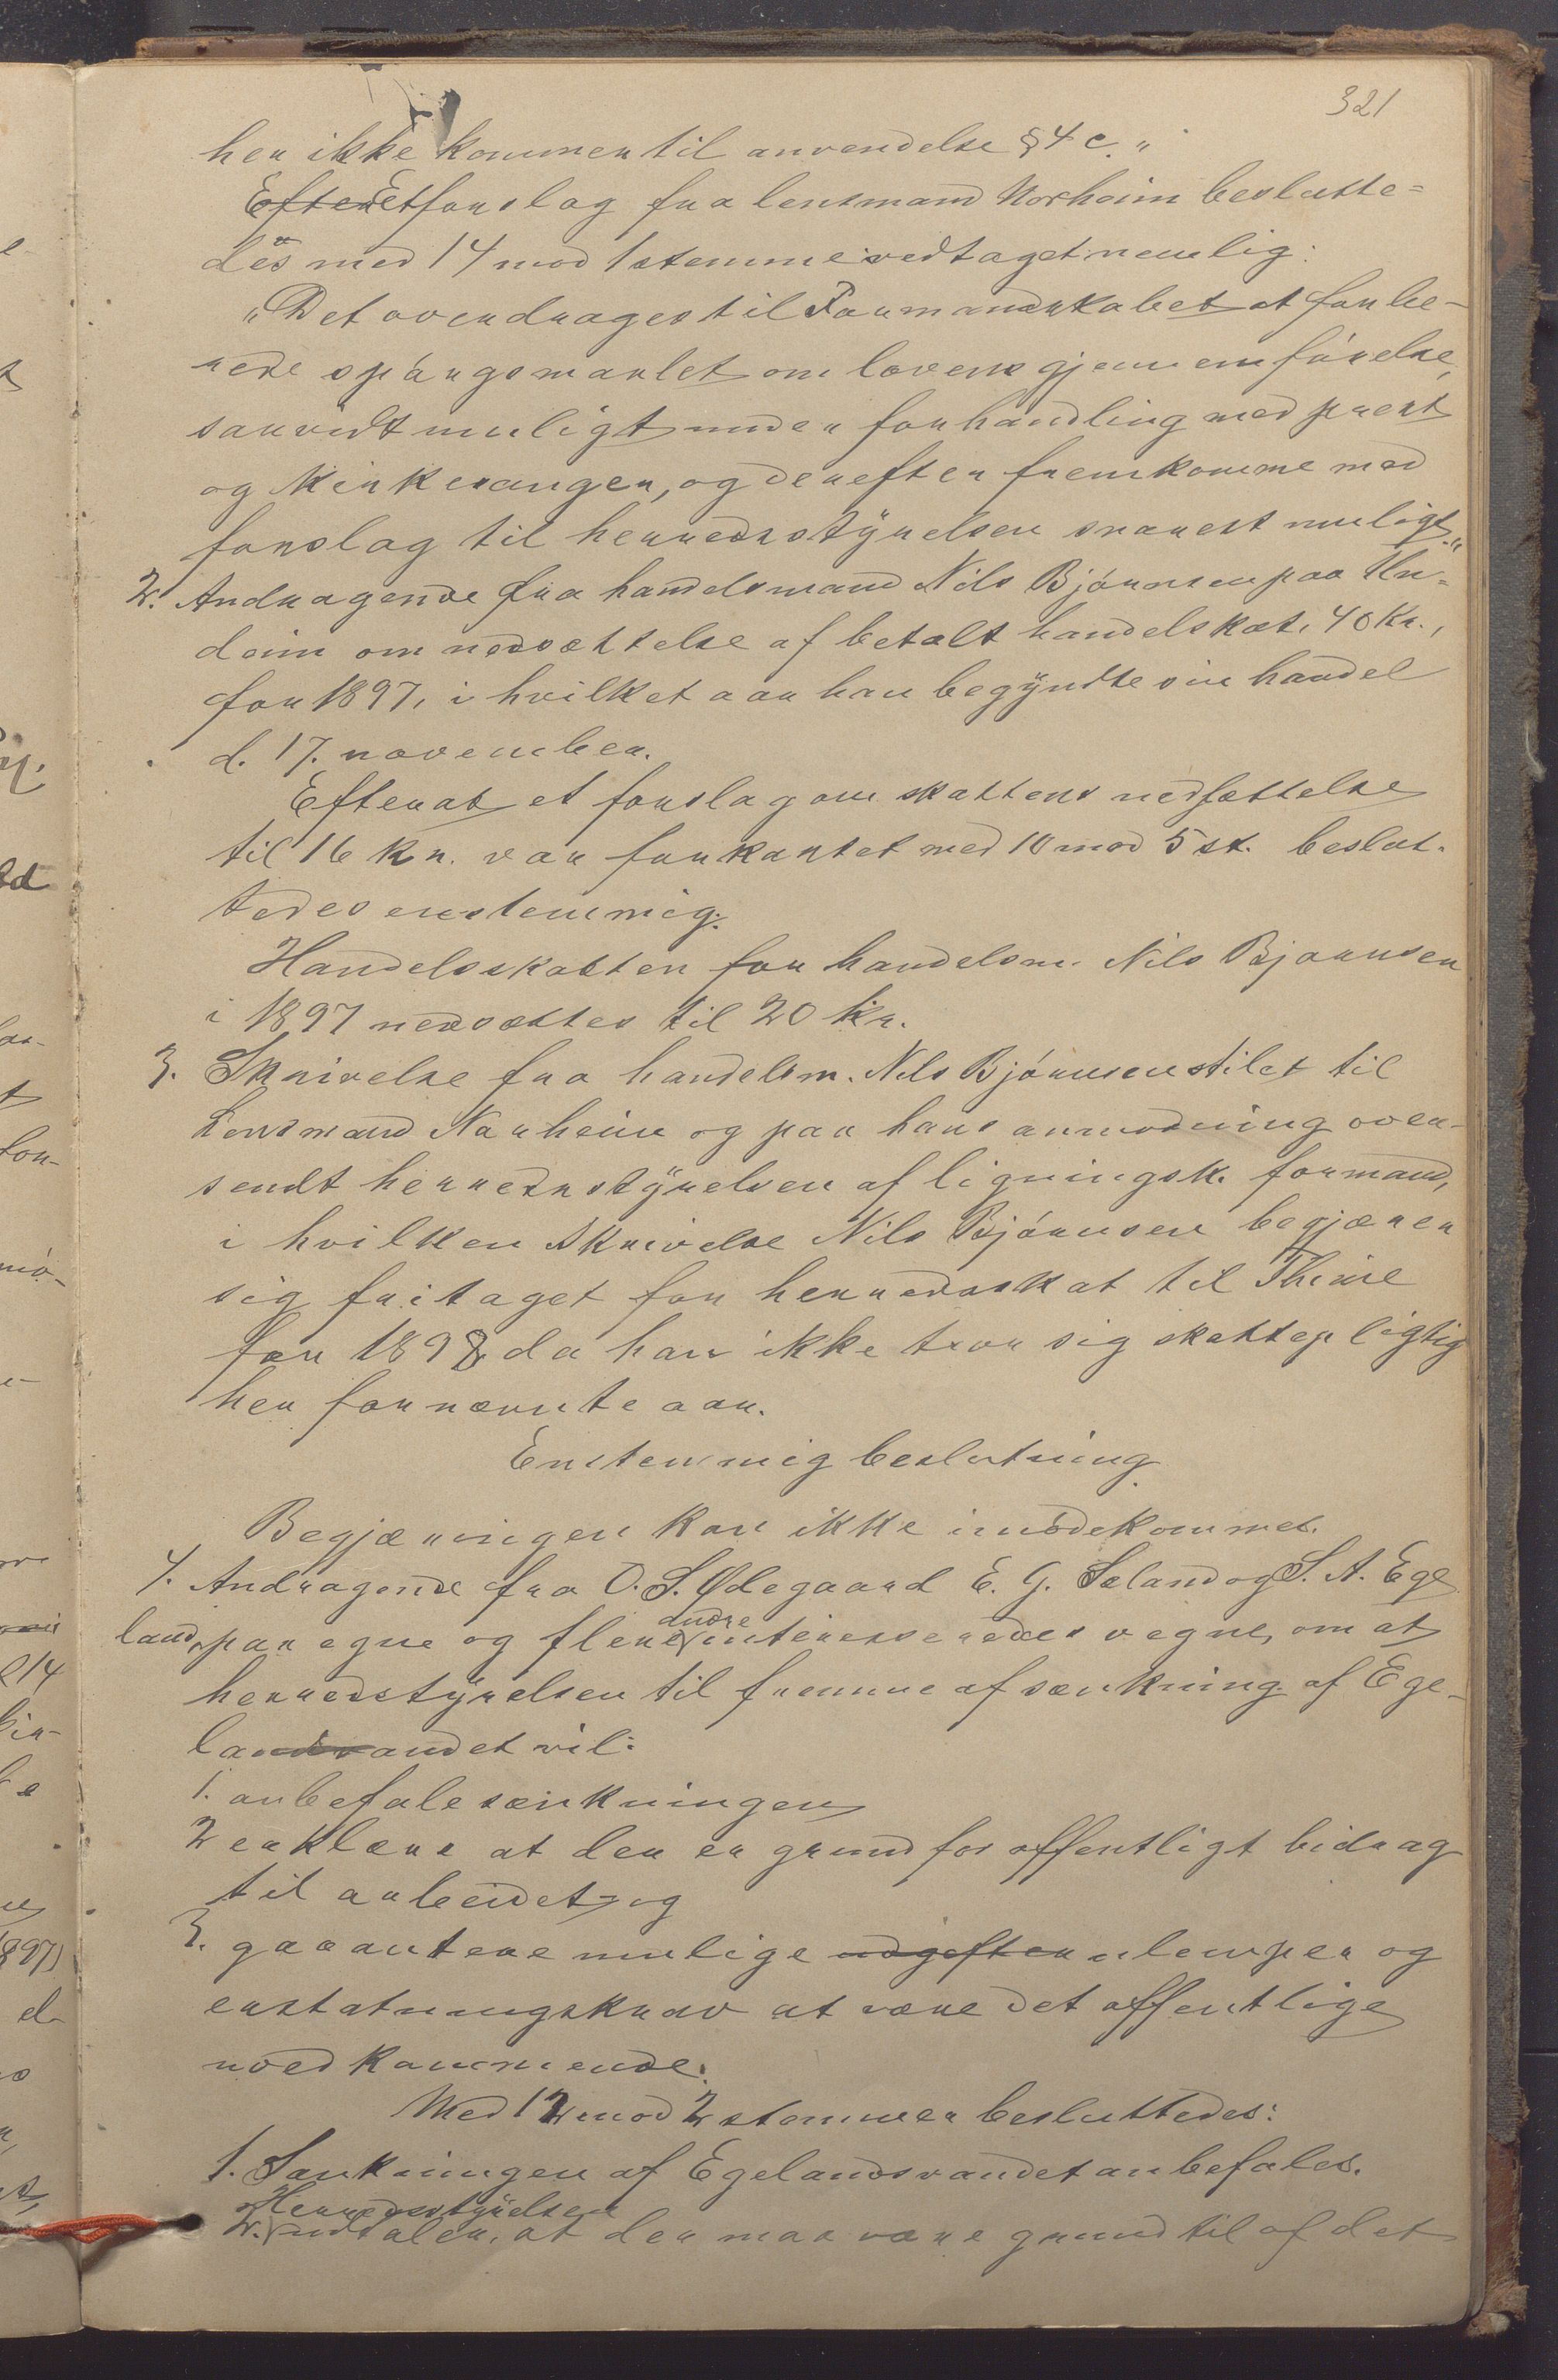 321
her ikke kommer til anvendelse § 4 c."
Efter Et forslag fra lensmand Norheim beslutte-
des med 14 mod 1 stemme vedtaget nemlig:
"Det overdrages til Formandskabet at forbe-
rede spórgsmaalet om lovens gjennemfórelse,
saavidt muligt under forhandling med prest
og kirkesanger, og derefter fremkomme med
forslag til herredsstyrelsen snarest muligt."
2. Andragende fra handelsmand Nils Bjórnsen paa Un-
deim om nedsættelse af betalt handelskat, 40 Kr.,
for 1897, i hvilket aar han begyndte sin handel
d. 17. november.
Efterat et forslag om skattens nedsættelse
til 16 Kr. var forkastet med 10 mod 5 st. beslut-
tedes enstemmig:
Handelsskatten for handelsm. Nils Bjornsen
i 1897 nedsættes til 20 kr.
3. Skrivelse fra handelsm. Nils Bjórnsen stilet til
Lensmand Norheim og paa hans anmodning over-
sendt herredsstyrelsen af ligningsk. formand,
i hvilken skrivelse Nils Bjórnsen begjærer
sig fritaget for herredsskat til Thime
for 1898, da han ikke tror sig skattepligtig
her for nævnte aar.
Enstemmig beslutning
Begjæringen kan ikke imódekommes.
4. Andragende fra O. S. Ødegaard E. G. Seland og S. A. Ege
land, paa egne og flere andre interesseredes vegne, om at
herredstyrelsen til fremme af sænkning af Ege-
landsvandet vil:
1. anbefale sænkningen
2 erklære at der er grund for offentligt bidrag
til arbeidet, og
3. garantere mulige udgifter ulemper og
erstatningskrav at være det offentlige
uvedkommende.
Med 12 mod 2 stemmer besluttedes:
1. Sænkningen af Egelandsvandet anbefales.
2. Herredsstyrelsen udtaler, at der maa være grund til af det